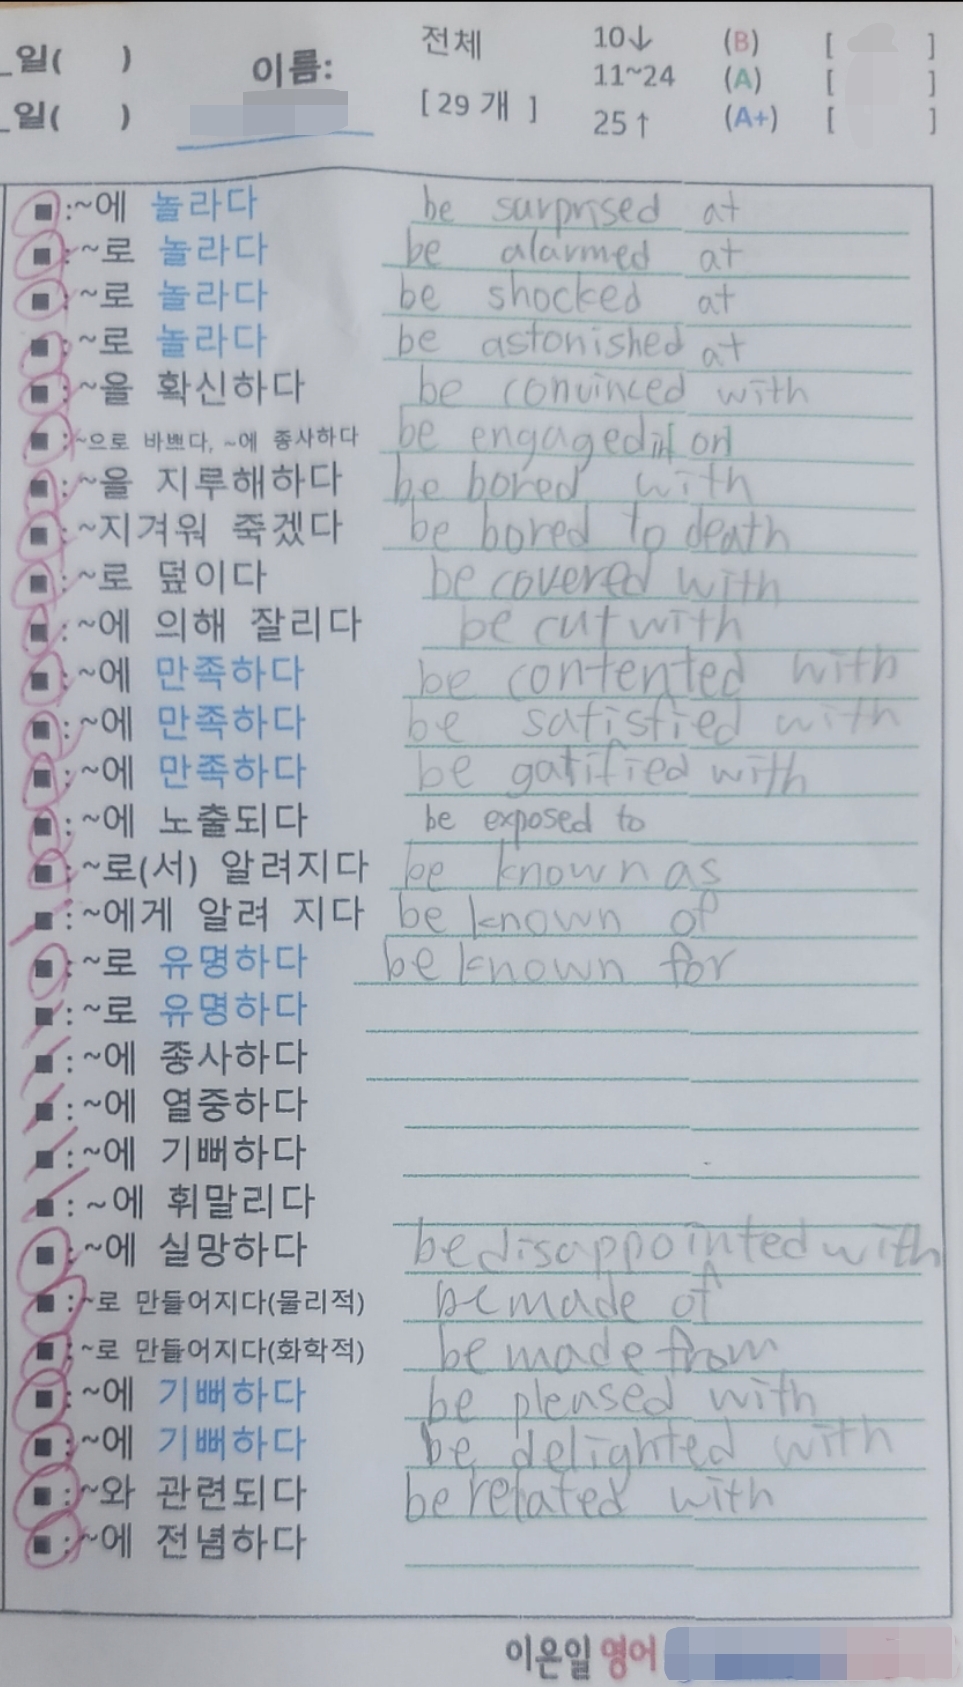 _일(   )
이름:
전체 10↓ (B) [ ]
11~24 (A) [ ]
_일(   )
[ 29 개 ] 25↑ (A+) [ ]
■:~에 놀라다 be surprised at
■:~로 놀라다 be alarmed at
■:~로 놀라다 be shocked at
■:~로 놀라다 be astonished at
■:~을 확신하다 be convinced with
■:~으로 바쁘다, ~에 종사하다 be engaged in[on]
■:~을 지루해하다 be bored with
■:~지겨워 죽겠다 be bored to death
■:~로 덮이다 be covered with
■:~에 의해 잘리다 be cut with
■:~에 만족하다 be contented with
■:~에 만족하다 be satisfied with
■:~에 만족하다 be gatified with
■:~에 노출되다 be exposed to
■:~로(서) 알려지다 be known as
■:~에게 알려 지다 be known of
■:~로 유명하다 be known for
■:~로 유명하다
■:~에 종사하다
■:~에 열중하다
■:~에 기뻐하다
■:~에 휘말리다
■:~에 실망하다 be disappointed with
■:~로 만들어지다(물리적) be made of
■:~로 만들어지다(화학적) be made from
■:~에 기뻐하다 be pleased with
■:~에 기뻐하다 be delighted with
■:~와 관련되다 be related with
■:~에 전념하다
이은일 영어